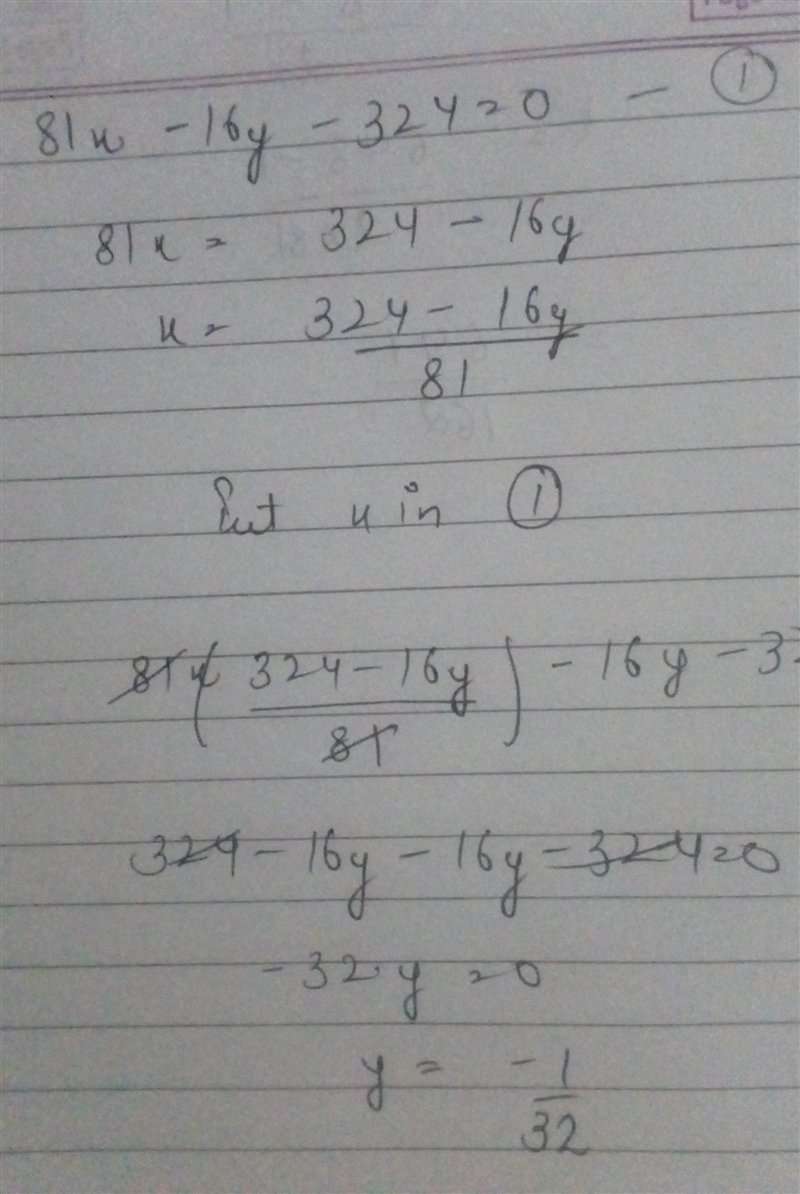 81x - 16y - 324 = 0 - ①
81x = 324 - 16y
x = 324 - 16y
81
Put x in ①
81x ( 324 - 16y ) - 16y - 3
81
324 - 16y - 16y - 324 = 0
-32y = 0
y = -1
32